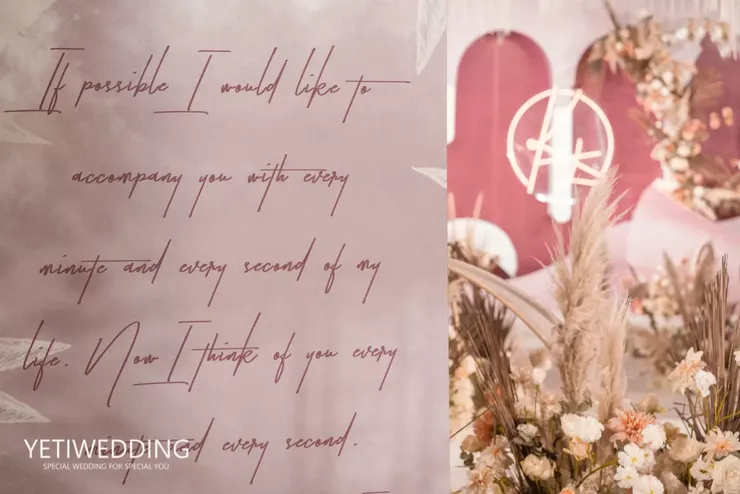 If possible I would like to
accompany you with every
minute and every second of my
life. Now I think of you every
and every second.
YETIWEDDING
SPECIAL WEDDING FOR SPECIAL YOU